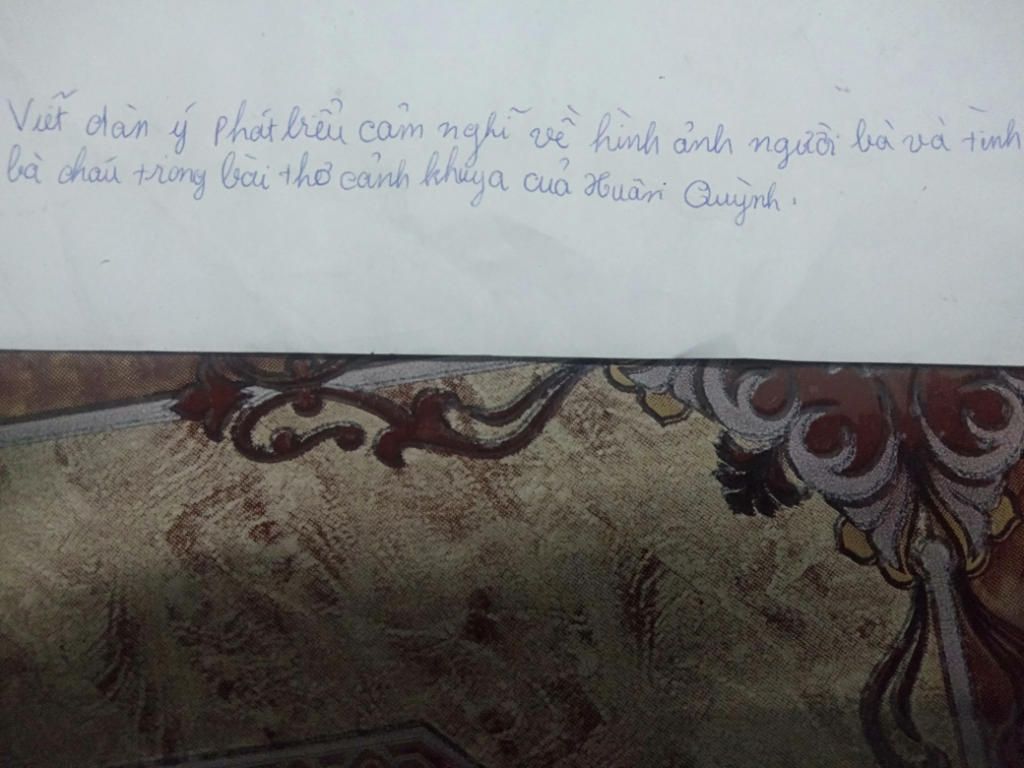 Viết dàn ý phát biểu cảm nghĩ về hình ảnh người bà và tình
bà cháu trong bài thơ cảnh khuya của Xuân Quỳnh.